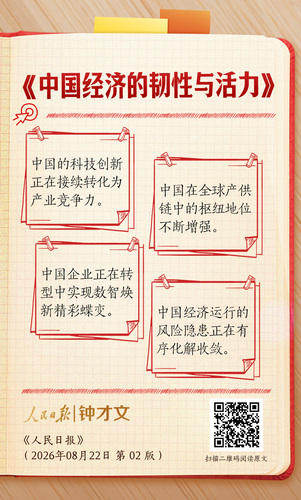 《中国经济的韧性与活力》
中国的科技创新
正在接续转化为
产业竞争力。
中国在全球产供
链中的枢纽地位
不断增强。
中国企业正在转
型中实现数智焕
新精彩蝶变。
中国经济运行的
风险隐患正在有
序化解收敛。
人民日报|钟才文
《人民日报》
（2026年08月22日 第 02 版）
扫描二维码阅读原文